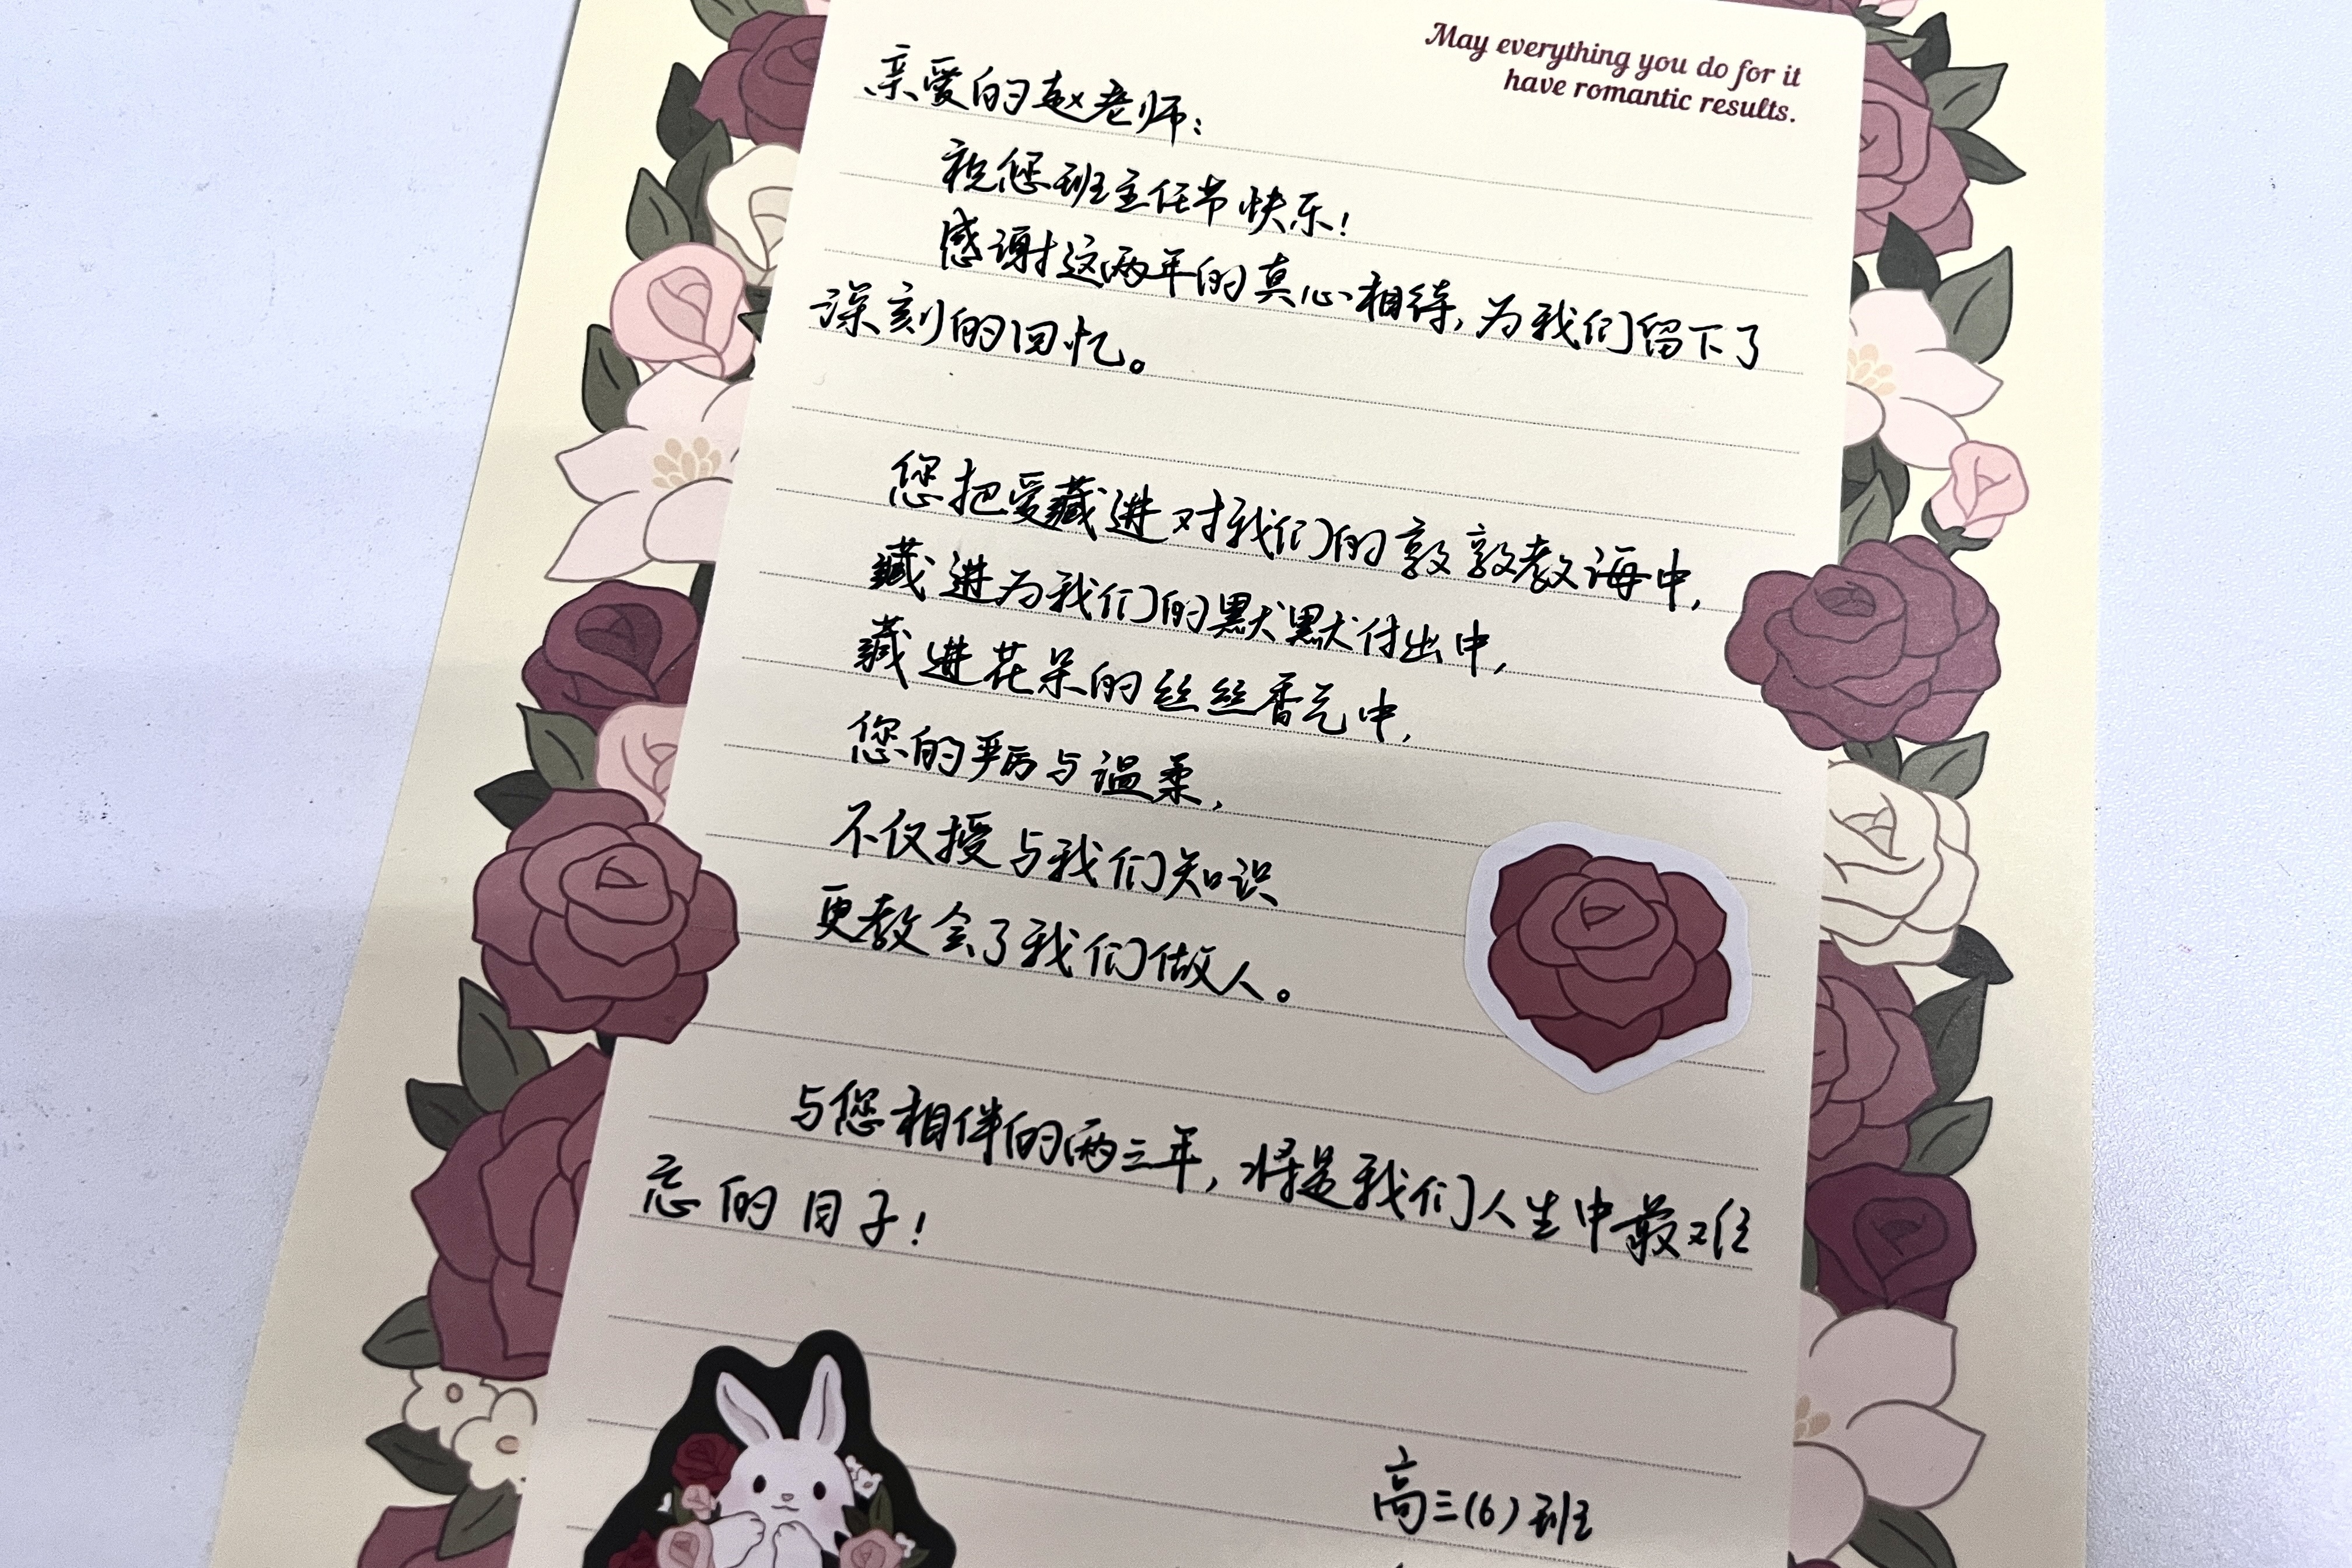 May everything you do for it
have romantic results.
亲爱的赵老师:
祝您班主任节快乐!
感谢这两年的真心相待,为我们留下了
深刻的回忆。
您把爱藏进对我们的敦敦教诲中,
藏进为我们的默默付出中,
藏进花朵的丝丝香气中,
您的严厉与温柔,
不仅授与我们知识
更教会了我们做人。
与您相伴的两三年,将是我们人生中最难
忘的日子!
高三(6)班